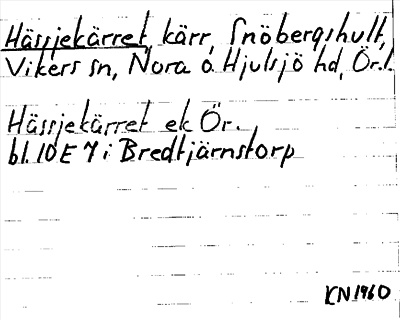 Hässjekärret, kärr, Snöbergshult,
Vikers sn, Nora o. Hjulsjö hd, Ör.l.
Hässjekärret ek Ör.
bl. 10E 7i Bredtjärnstorp
KN 1960